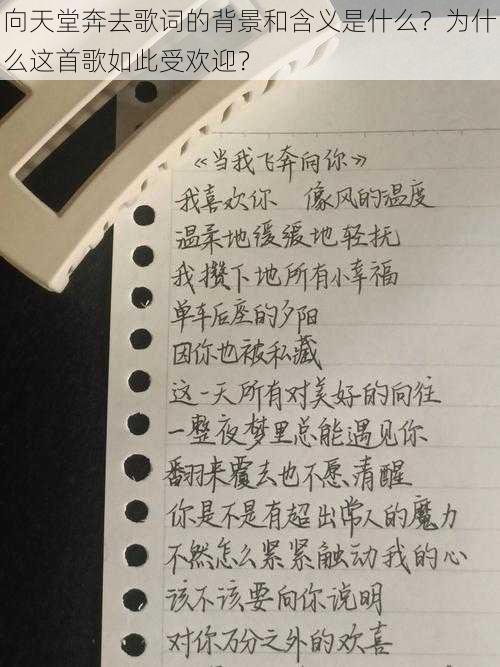 向天堂奔去歌词的背景和含义是什么？为什
么这首歌如此受欢迎？
《当我飞奔向你》
我喜欢你 像风的温度
温柔地缓缓地轻抚
我攒下地所有小幸福
单车后座的夕阳
因你也被私藏
这一天所有对美好的向往
一整夜梦里总能遇见你
翻来覆去也不愿清醒
你是不是有超出常人的魔力
不然怎么紧紧触动我的心
该不该要向你说明
对你万分之外的欢喜